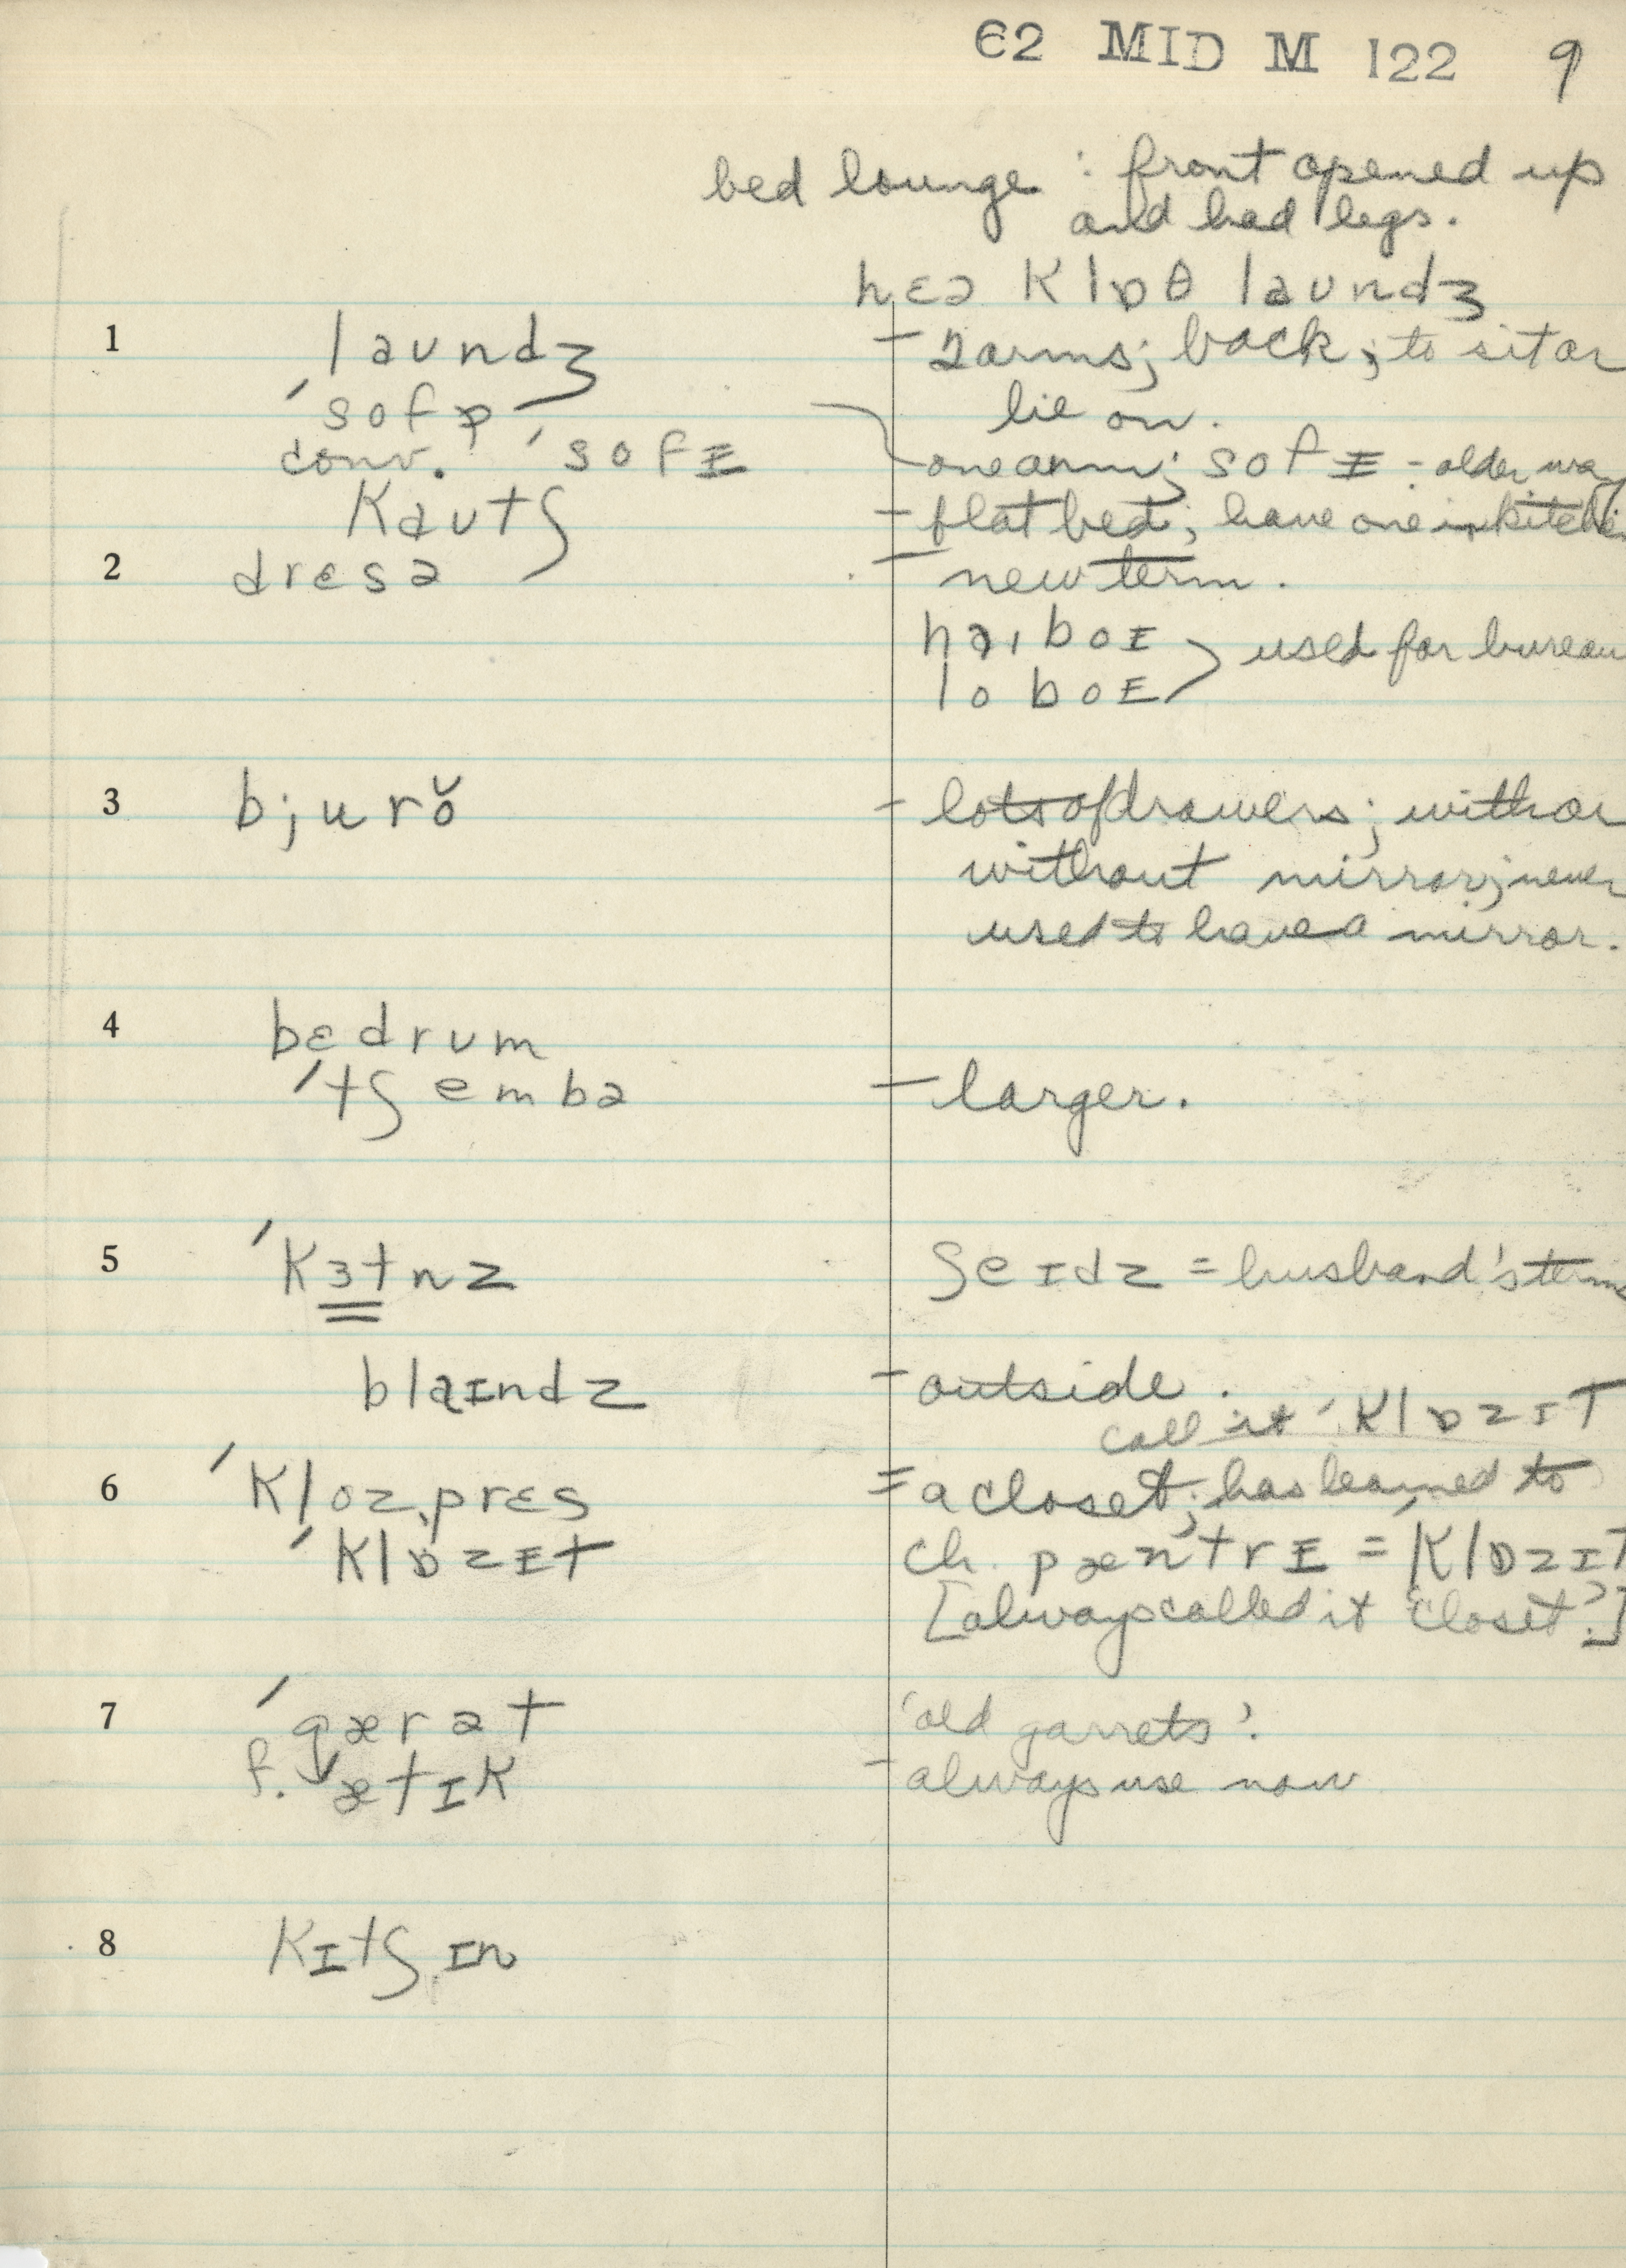 62 MID M 122 9
bed lounge : front opened up
and had legs.
hɛə klɒθ laundʒ
1 laundʒ - 2 arms; back; to sit or
lie on.
ˈsofə
conv. ˈsofɪ - one arm; sofɪ - older way
kautʃ - flat bed; have one in kitchen
2 drɛsə - new term.
haɪboɪ
loboɪ } used for bureau
3 bjurŏ - lots of drawers; with or
without mirror; never
used to have a mirror.
4 bɛdrum
ˈtʃembə - larger.
5 ˈkɜtnz ʃeɪdz = husband's term
blaɪndz - outside.
call it ˈklɒzɪt
6 ˈkloz,prɛs = a closet; has learned to
ˈklɒzɪt ch. pæntrɪ = ˈklɒzɪt
[always called it 'closet'.]
7 ˈgærət 'old garrets'.
f. ætɪk - always use now
8 kɪtʃ,ɪn